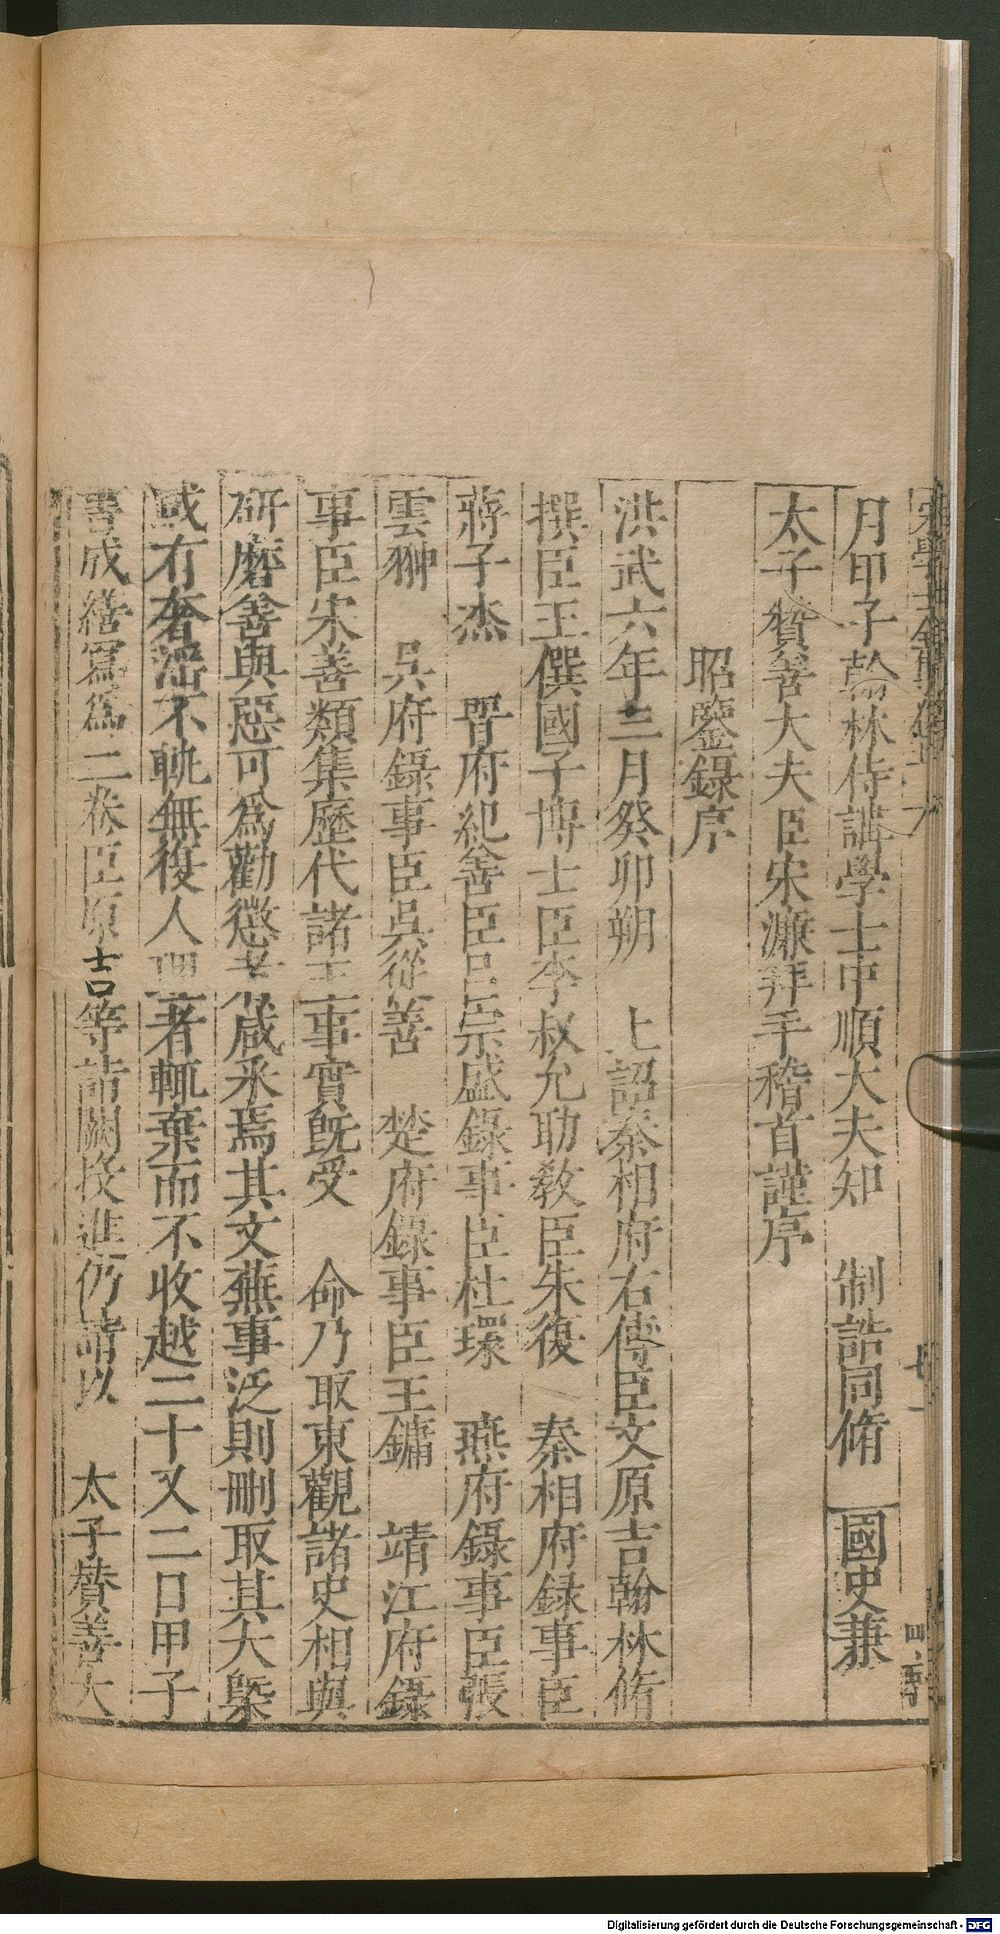 月甲子翰林侍講學士中順大夫知　制誥同脩　國史兼
太子贊善大夫臣宋濂拜手稽首謹序
昭鑒錄序
洪武六年三月癸卯朔　上詔秦相府右傅臣文原吉翰林脩
撰臣王僎國子博士臣李叔允助敎臣朱復　秦相府録事臣
蔣子杰　晉府紀善臣呂宗盛錄事臣杜環　燕府錄事臣張
雲翀　吳府錄事臣吳從善　楚府錄事臣王鏞　靖江府錄
事臣宋善類集歷代諸王事實旣受　命乃取東觀諸史相與
研磨善與惡可為勸懲者咸采焉其文蕪事泛則刪取其大槩
或有奢淫不軌無復人理者輒棄而不收越二十又二日甲子
書成繕寫爲二卷臣原吉等詣闕投進仍請以　太子贊善大
Digitalisierung gefördert durch die Deutsche Forschungsgemeinschaft - DFG